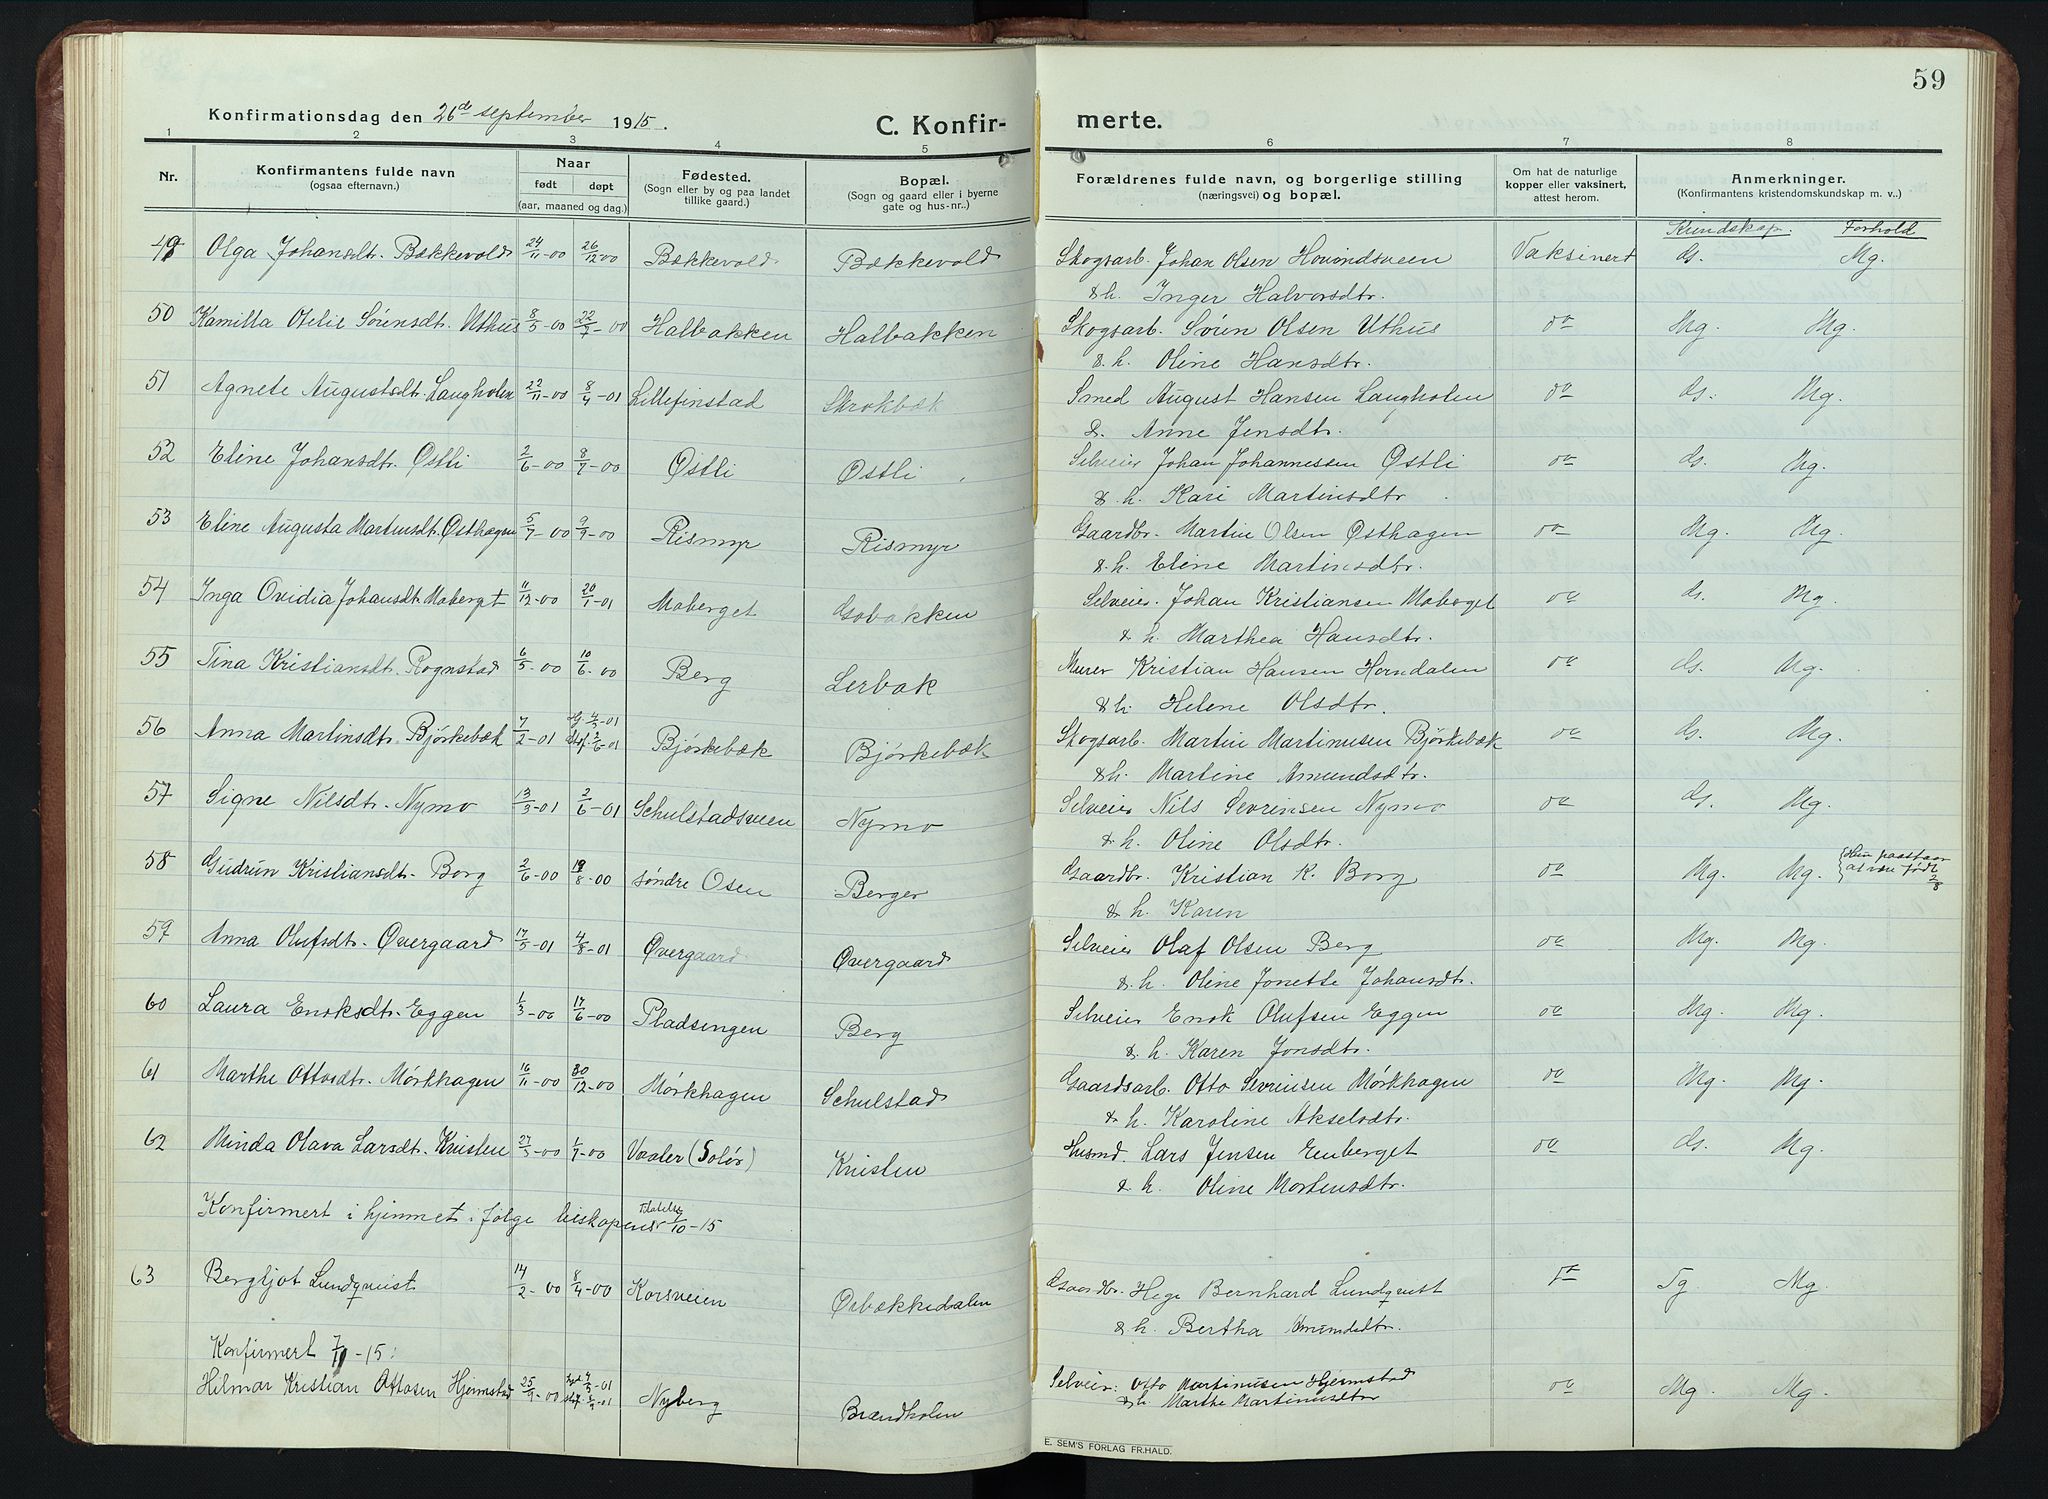 59
Konfirmationsdag den 26de september 1915.
C. Konfir- merte.
1 2 3 4 5 6 7 8
Nr.
Konfirmantens fulde navn
(ogsaa efternavn.)
Naar
født døpt
(aar, maaned og dag.)
Fødested.
(Sogn eller by og paa landet
tillike gaard.)
Bopæl.
(Sogn og gaard eller i byerne
gate og hus-nr..)
Forældrenes fulde navn, og borgerlige stilling
(næringsvei) og bopæl.
Om hat de naturlige
kopper eller vaksinert,
attest herom.
Anmerkninger.
(Konfirmantens kristendomskundskap m. v..)
Kundskap. Forhold
49 Olga Johansdtr. Bækkevold 24/11-00 26/12 00 Bækkevold Bækkevold Skogsarb. Johan Olsen Hovindsveen Vaksinert ds. Mg.
& h. Inger Halvorsdtr.
50 Kamilla Otelie Sørensdt. Uthus 8/5-00 22/7-00 Halbakken Halbakken Skogsarb. Søren Olsen Uthus do Mg. Mg.
& h. Oline Hansdtr.
51 Agnete Augustsdt. Laugholen 22/11-00 8/4-01 Lillefinstad Skrokbæk Smed August Hansen Laugholen do ds. Mg.
& Anne Jensdtr.
52 Eline Johansdtr. Østli 2/6-00 8/7-00 Østli Østli Selveier Johan Johannessen Østli do ds. Mg.
& h. Kari Martinsdtr.
53 Eline Augusta Martinsdt. Østhagen 5/7-00 9/9-00 Rismyr Rismyr Gaardbr. Martin Olsen Østhagen do Mg. Mg.
& h. Eline Martinsdtr.
54 Inga Ovidia Johansdt. Moberget 11/12-00 20/1-01 Moberget Gobakken Selveier. Johan Kristiansen Moberget do ds. Mg.
& h. Marthea Hansdtr.
55 Tina Kristiansdt. Rognstad 6/5-00 10/6-00 Berg Lerbak Murer Kristian Hansen Horndalen do ds. Mg.
& h. Helene Olsdtr.
56 Anna Martinsdtr. Bjørkebæk 7/2-01 Bjørkebæk Bjørkebæk Skogsarb. Martin Martinusen Bjørkebæk do ds. Mg.
& h. Martine Amundsdtr.
57 Signe Nilsdtr. Nymo 13/3-01 2/6-01 Schulstadsveen Nymo Selveier Nils Sevrinsen Nymo do ds. Mg.
& h. Oline Olsdtr.
58 Gudrun Kristiansdt. Borg 2/6-00 19/8-00 søndre Osen Berger Gaardbr. Kristian K. Borg do Mg. Mg. Hun paastaar
at være født
2/8
& h. Karen
59 Anna Olufsdt. Øvergaard 17/5-01 4/8-01 Øvergaard Øvergaard Selveier Olaf Olsen Berg do Mg. Mg.
& h. Oline Jonette Johansdtr.
60 Laura Enoksdtr. Eggen 1/3-00 17/6-00 Pladsengen Berg Selveier Enok Olufsen Eggen do Mg. Mg.
& h. Karen Jonsdtr.
61 Marthe Ottosdtr. Mørkhagen 16/11-00 30/12-00 Mørkhagen Schulstad Gaardsarb. Otto Sevrinsen Mørkhagen do Mg. Mg.
& h. Karoline Akselsdtr.
62 Minda Olava Larsdt. Knisten 27/5-00 1/7-00 Vaaler (Solør) Knisten Husmd. Lars Jensen Enberget do ds. Mg.
& h. Oline Mortensdtr.
Konfirmert i hjemmet i følge biskopens Tilatelse 3/10-15
63 Bergljot Lundqvist 14/2-00 8/4-00 Korsveien Ørbækkedalen Gaardbr. Hege Bernhard Lundqvist Tg. Mg.
& h. Bertha Amundsdtr.
Konfirmert 7/11-15:
Hilmar Kristian Ottosen Hjemstad 25/9-00 Nyberg Brændholen Selveier: Otto Martinusen Hjemstad do Mg. Mg.
& h. Marthe Martinusdtr
E. SEM'S FORLAG FR.HALD.